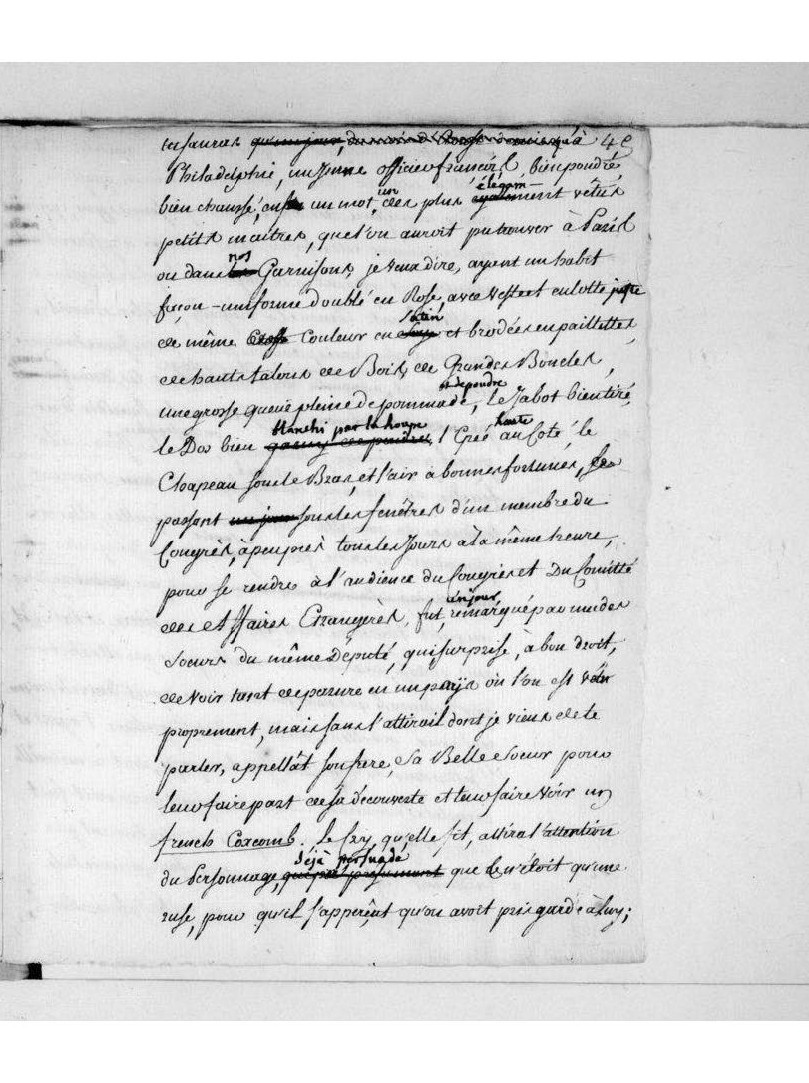 tu sauras à 49
Philadelphie, un Jeune officier francois, bien poudré,
bien chaussé, en un mot, un des plus élégam-ment vêtus
petits maitres, que l'on auroit pu trouver à Paris
ou dans nos Garnisons, je veux dire, ayant un habit
façon-uniforme doublé en Rose, avec veste et culotte juste
de même Couleur en satin et brodées en paillettes,
de hauts talons de Bois, de Grandes Boucles,
une grosse queüe pleine de pommade, et de poudre le Jabot bien tiré,
le Dos bien blanchi par la houpe, l'Epée haute au Coté, le
Chapeau sous le Bras, et l'air à bonnes fortunes,
passant sous les fenêtres d'un membre du
Congrès, à peu près tous les Jours à la même heure,
pour se rendre à l'audience du Congrès et Du Comitté
des Affaires Etrangères, fut, un jour, remarqué par une des
Soeurs du même Député, qui surprise, à bon droit,
de voir tant de parure en un pays où l'on est vêtu
proprement, mais sans l'attirail dont je viens de te
parler, appellât son frere, sa Belle Soeur pour
leur faire part de sa decouverte et leur faire voir un
french Coxcomb. Le Cry, qu'elle fit, attira l'attention
du Personnage, déjà persuadé que ce n'étoit qu'une
ruse, pour qu'il s'apperçut qu'on avoit pris garde à luy;